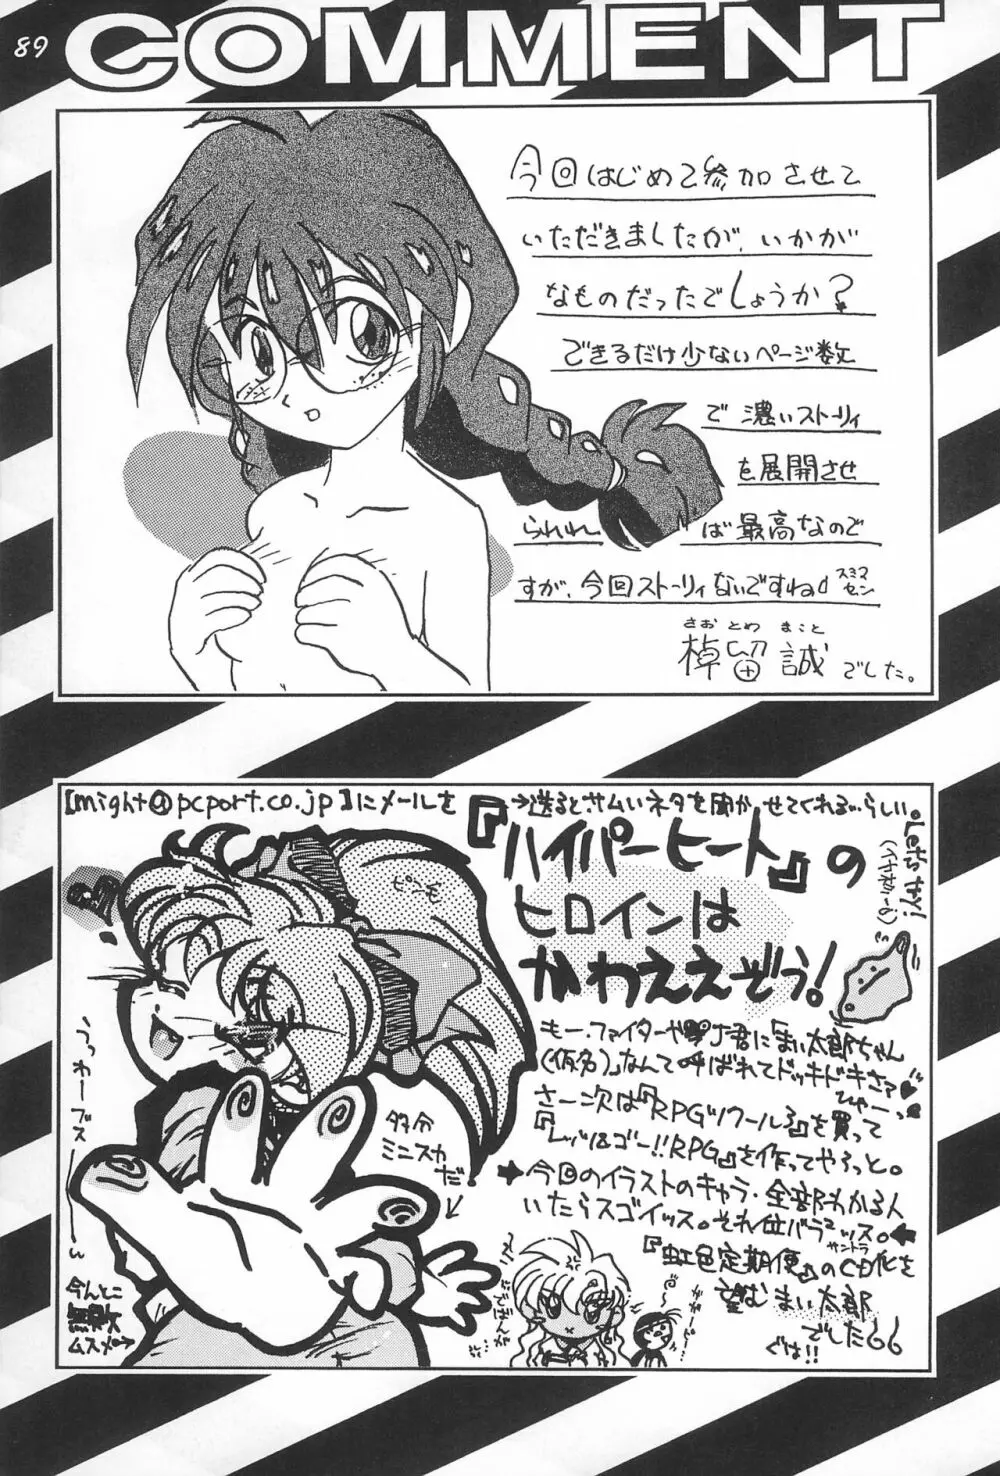 89
COMMENT
今回はじめて参加させて
いただきましたが、いかが
なものだったでしょうか?
できるだけ少ないページ数
で濃いストーリィ
を展開させ
られれば最高なので
すが、今回ストーリィないですねσ スミマセン
さおとめ まこと
棹留誠でした。
【might@pcport.co.jp】にメールを
→送るとサムいネタを聞かせてくれる…らしい。
Let's try!
『ハイパーヒート』の
ヒロインは
かわええぞう!
ピンモ
もー、ファイターや
J君にまい太郎ちゃん
(仮名)なんて呼ばれてドッキドキさァ♥
ひゅー
さー次は『RPGツクール3』を買って
『レッツ&ゴー!!RPG』を作ってやろっと。
★今回のイラストのキャラ、全部わかる人
いたらスゴイッス。それ位バラ2ッス。
サントラ
『虹色定期便』のCD化を
望むまい太郎
でした66
ぐは!!
うっわーブスー
多分
ミニスカ
だ!
今んとこ
無敵
ムスメ→